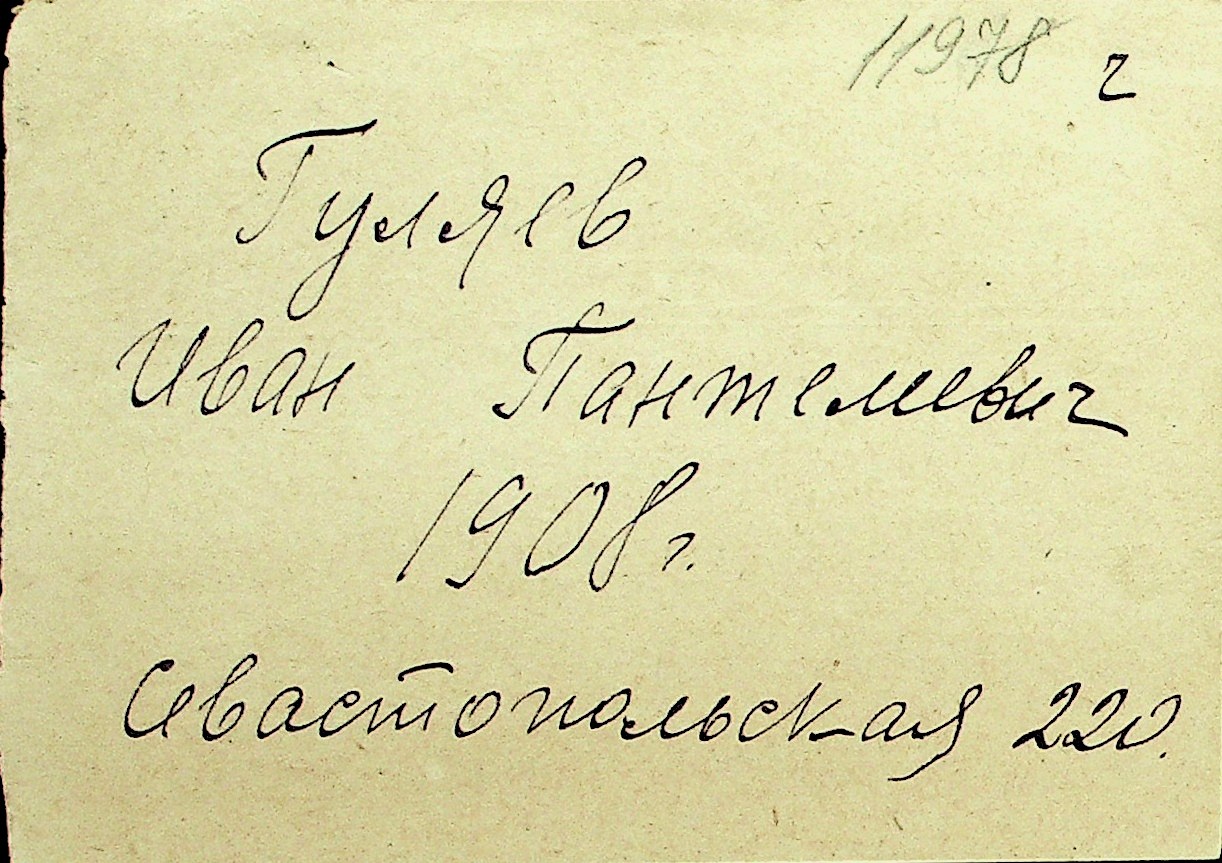 11978 г
Гуляев
Иван Пантелеевич
1908 г.
Севастопольская 220.